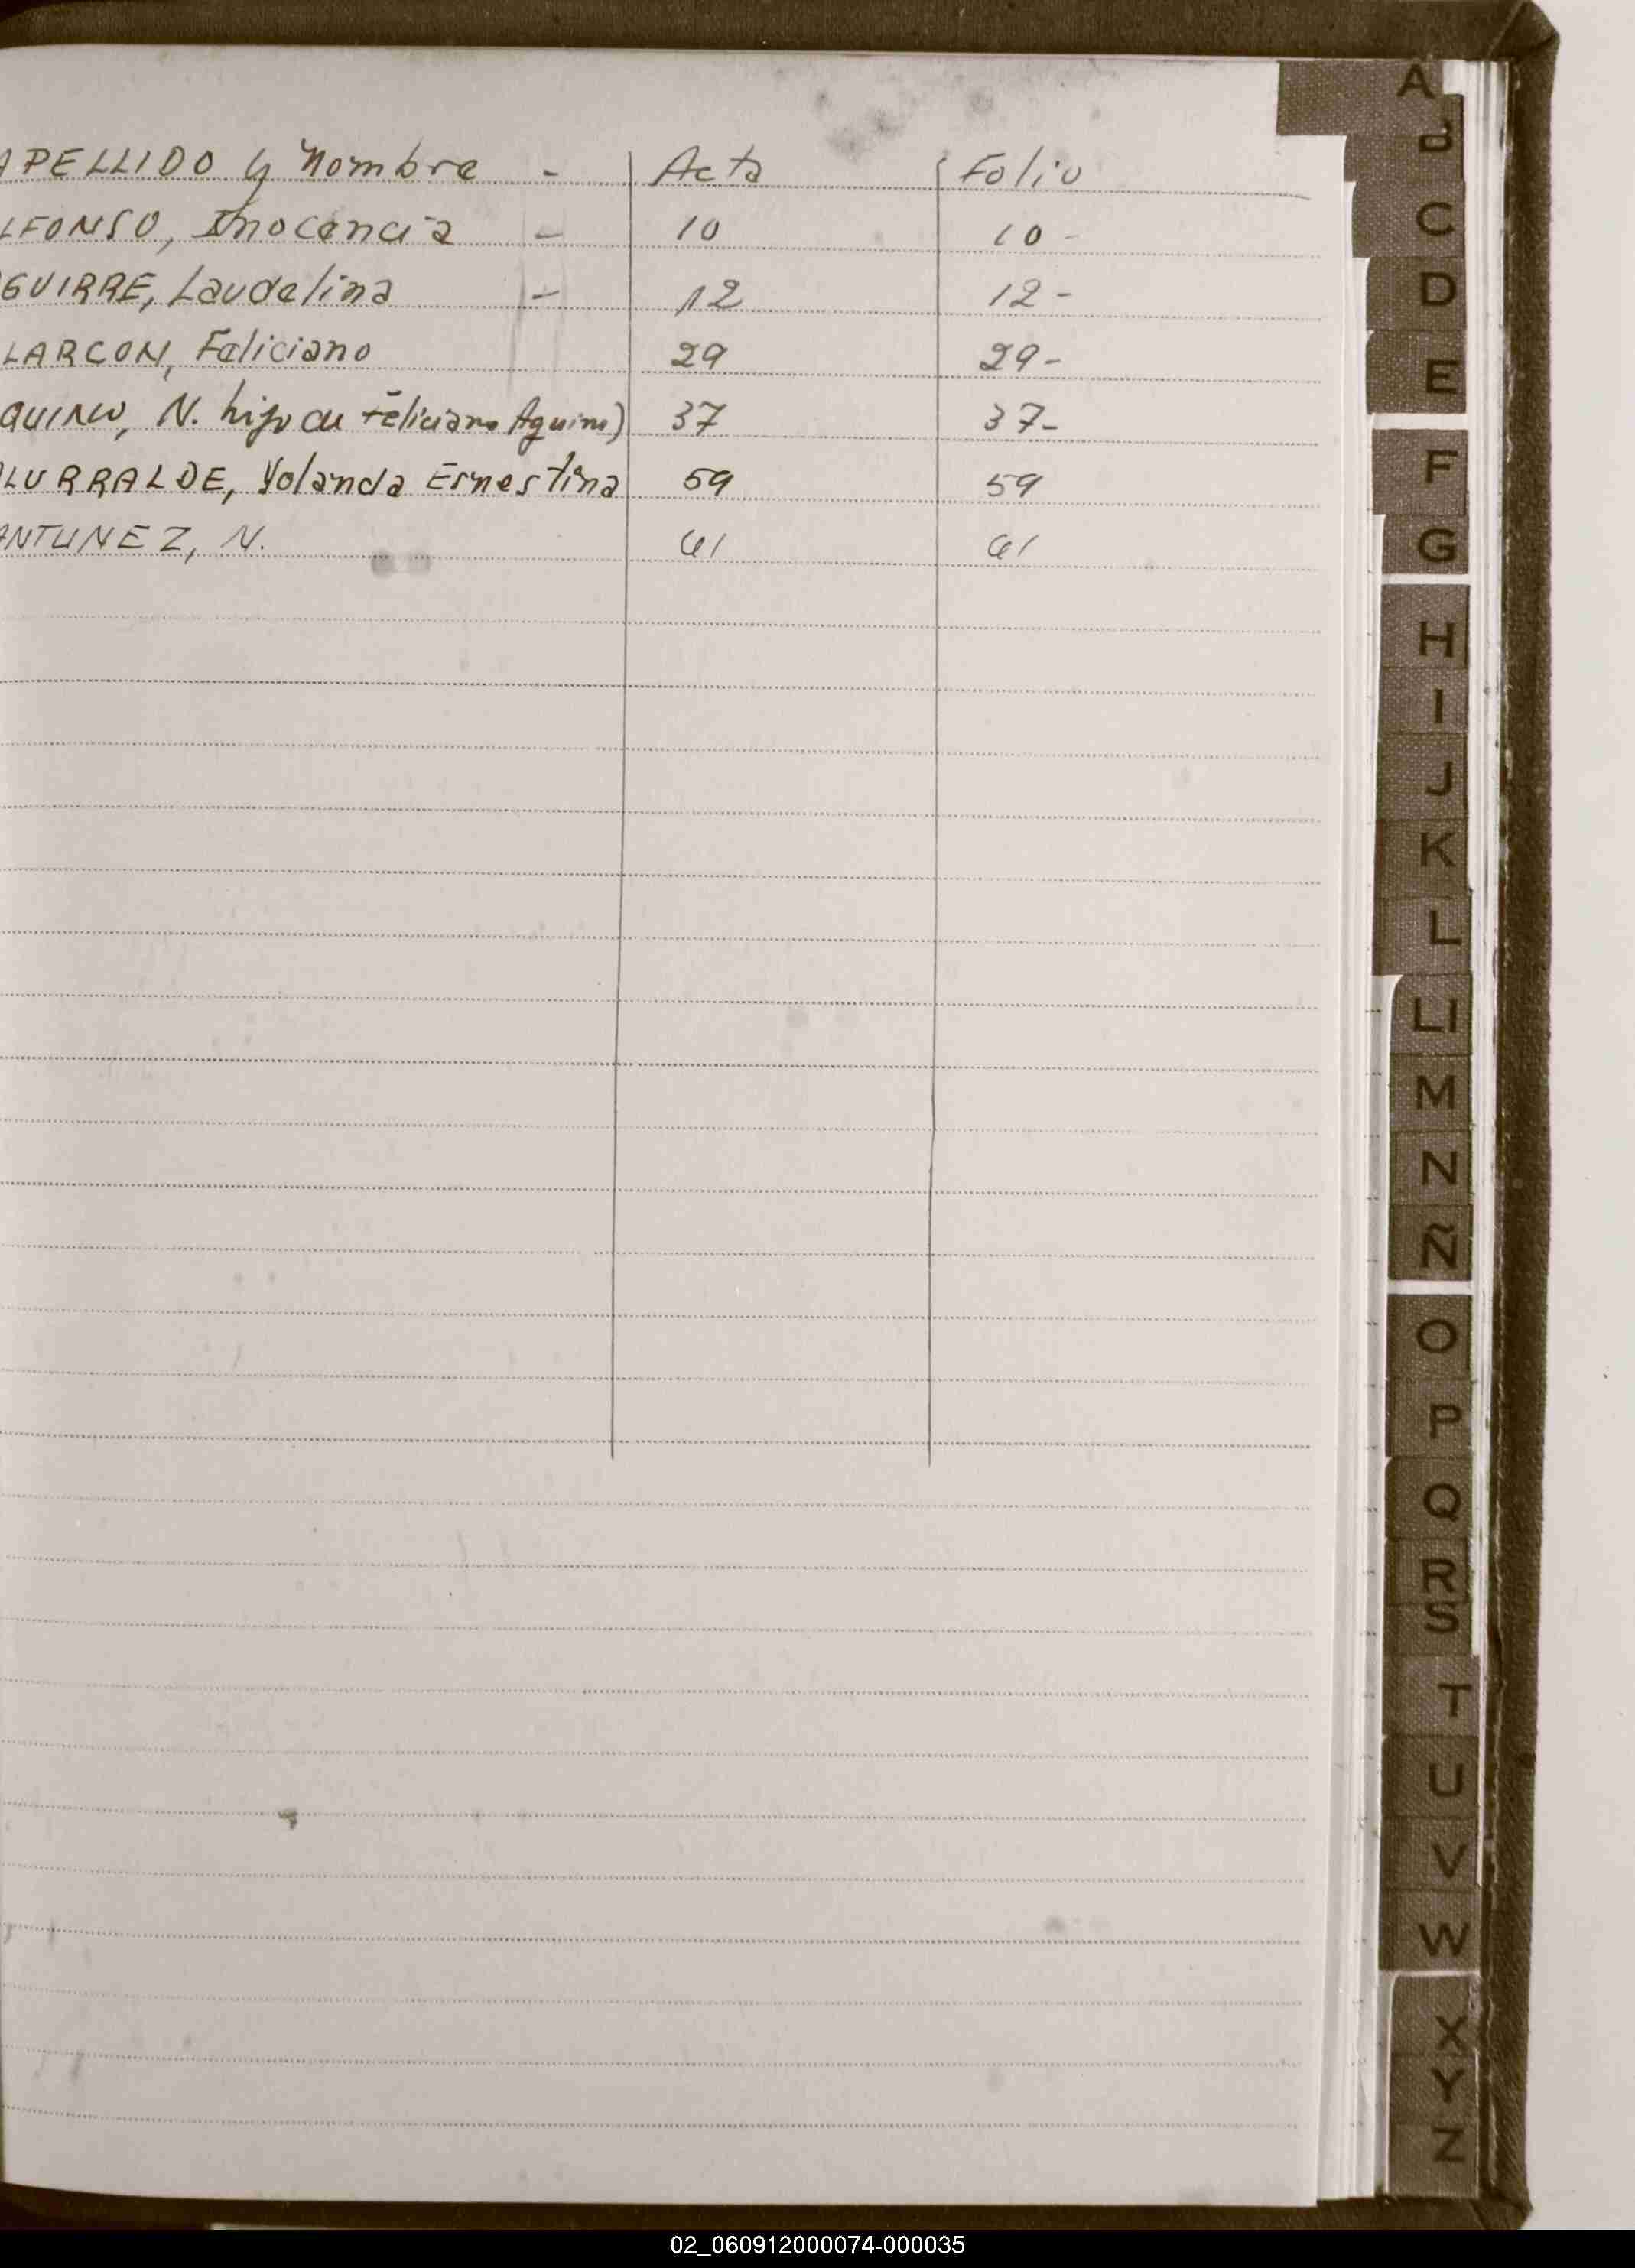 APELLIDO y Nombre - Acta Folio
LFONSO, Inocencia - 10 10-
GUIRRE, Laudelina - 12 12-
LARCON, Feliciano 29 29-
QUINO, N. hijo de Feliciano Aquino) 37 37-
LURRALDE, Yolanda Ernestina 59 59
ANTUNEZ, N. 61 61
A
B
C
D
E
F
G
H
I
J
K
L
Ll
M
N
Ñ
O
P
Q
R
S
T
U
V
W
X
Y
Z
02_060912000074-000035